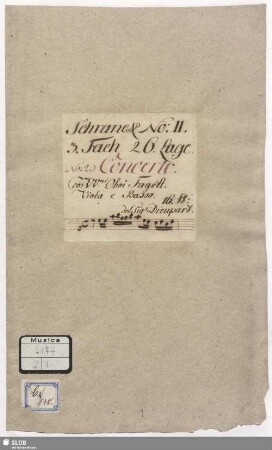 Schranck No: II.
3. Fach 26. Lage.
Concerto.
co VVni Oboi Fagott.
Viola e Basso.
16. St:
del Sigr Dieupart.
Musica
SLUB